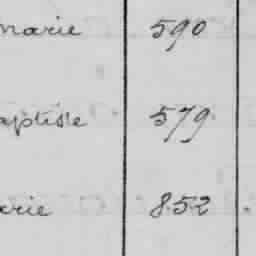 marie 590
aptiste 579
arie 852